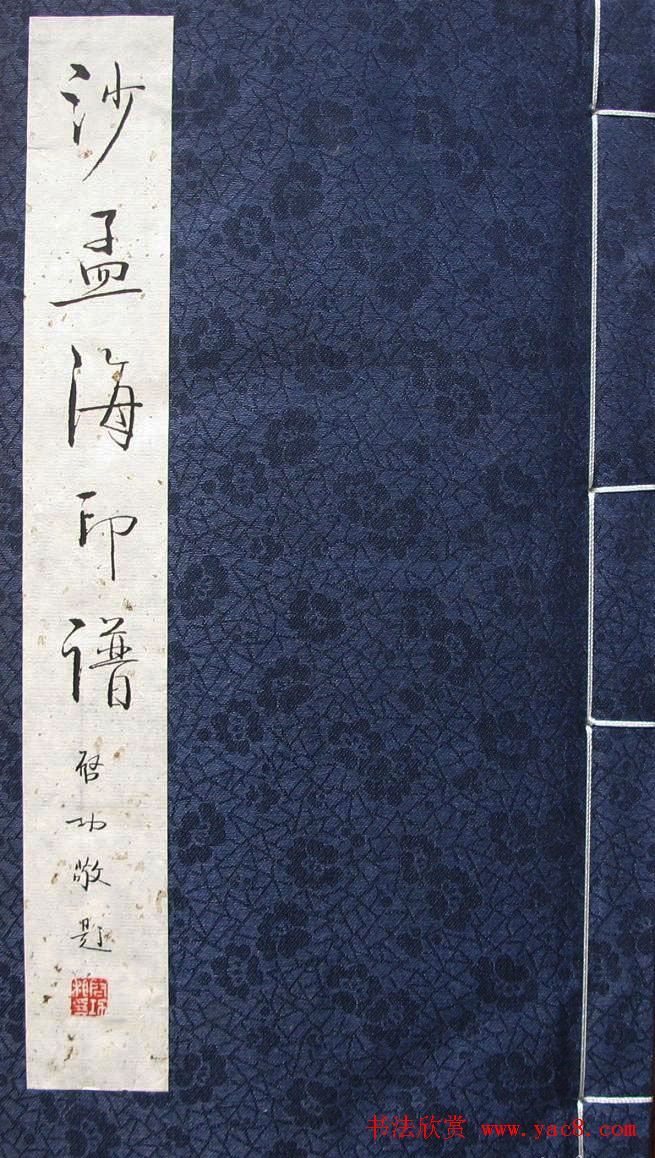 沙孟海印谱
启功敬题
启功
书法欣赏 www.yac8.com